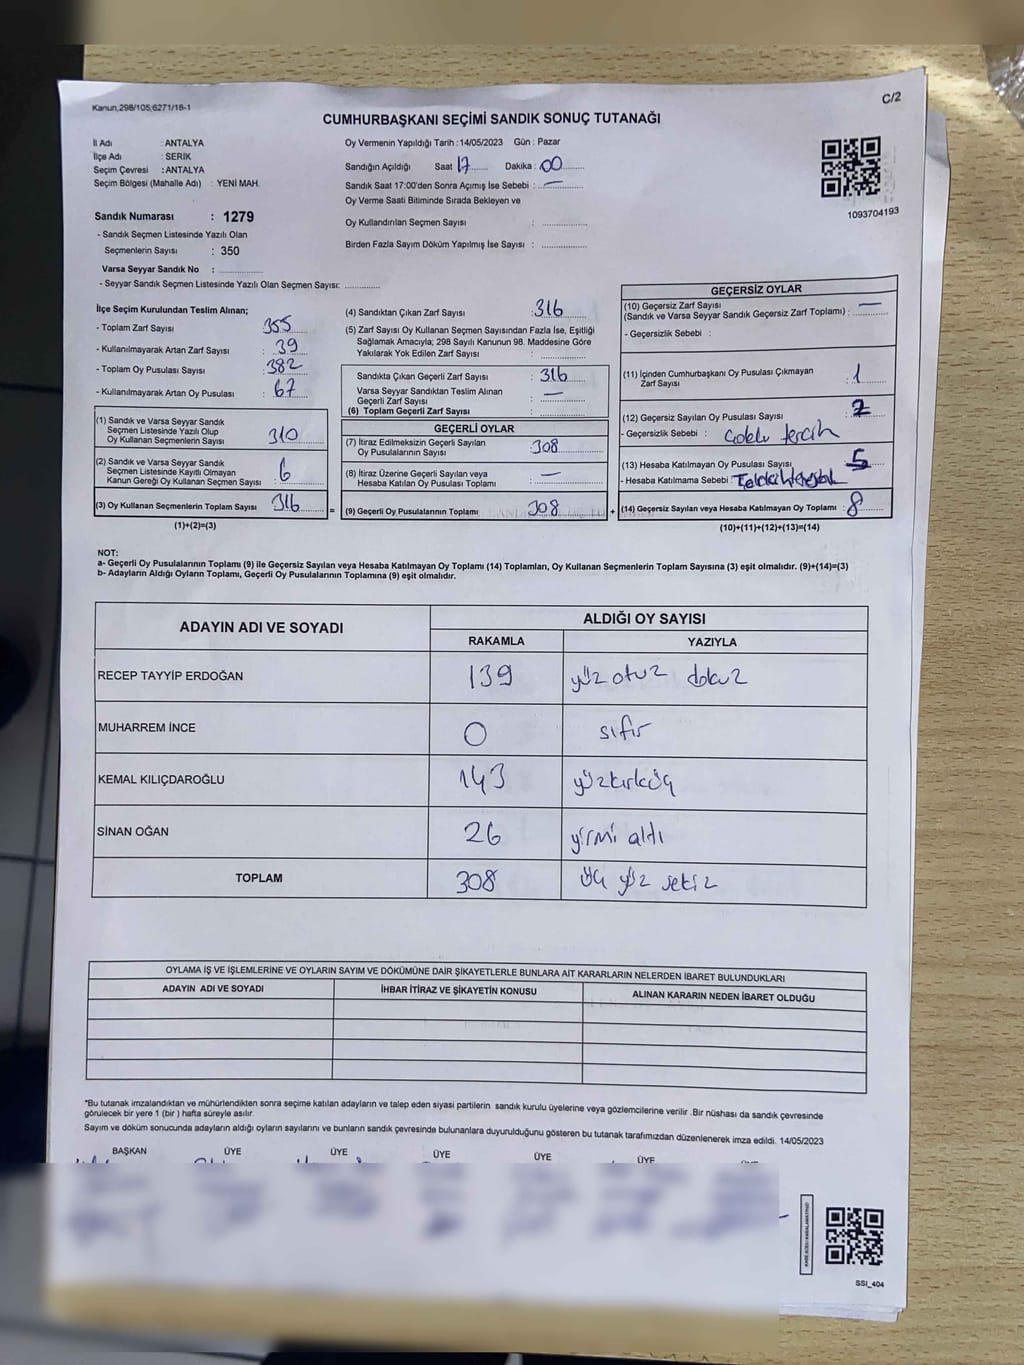 Kanun.298/105;6271/16-1
C/2
CUMHURBAŞKANI SEÇİMİ SANDIK SONUÇ TUTANAĞI
İl Adı : ANTALYA
İlçe Adı : SERİK
Seçim Çevresi : ANTALYA
Seçim Bölgesi (Mahalle Adı) : YENİ MAH.
Sandık Numarası : 1279
- Sandık Seçmen Listesinde Yazılı Olan
Seçmenlerin Sayısı : 350
Varsa Seyyar Sandık No :
- Seyyar Sandık Seçmen Listesinde Yazılı Olan Seçmen Sayısı:
Oy Vermenin Yapıldığı Tarih :14/05/2023 Gün : Pazar
Sandığın Açıldığı Saat 17 Dakika : 00
Sandık Saat 17:00'den Sonra Açımış İse Sebebi : —
Oy Verme Saati Bitiminde Sırada Bekleyen ve
Oy Kullandırılan Seçmen Sayısı :
Birden Fazla Sayım Döküm Yapılmış İse Sayısı :
1093704193
İlçe Seçim Kurulundan Teslim Alınan;
- Toplam Zarf Sayısı : 355
- Kullanılmayarak Artan Zarf Sayısı : 39
- Toplam Oy Pusulası Sayısı : 382
- Kullanılmayarak Artan Oy Pusulası : 67
(1) Sandık ve Varsa Seyyar Sandık
Seçmen Listesinde Yazılı Olup
Oy Kullanan Seçmenlerin Sayısı : 310
(2) Sandık ve Varsa Seyyar Sandık
Seçmen Listesinde Kayıtlı Olmayan
Kanun Gereği Oy Kullanan Seçmen Sayısı : 6
(3) Oy Kullanan Seçmenlerin Toplam Sayısı : 316
(1)+(2)=(3)
(4) Sandıktan Çıkan Zarf Sayısı : 316
(5) Zarf Sayısı Oy Kullanan Seçmen Sayısından Fazla İse, Eşitliği
Sağlamak Amacıyla; 298 Sayılı Kanunun 98. Maddesine Göre
Yakılarak Yok Edilen Zarf Sayısı :
Sandıkta Çıkan Geçerli Zarf Sayısı : 316
Varsa Seyyar Sandıktan Teslim Alınan
Geçerli Zarf Sayısı : —
(6) Toplam Geçerli Zarf Sayısı :
GEÇERLİ OYLAR
(7) İtiraz Edilmeksizin Geçerli Sayılan
Oy Pusulalarının Sayısı : 308
(8) İtiraz Üzerine Geçerli Sayılan veya
Hesaba Katılan Oy Pusulası Toplamı : —
= (9) Geçerli Oy Pusulalarının Toplamı : 308
GEÇERSİZ OYLAR
(10) Geçersiz Zarf Sayısı
(Sandık ve Varsa Seyyar Sandık Geçersiz Zarf Toplamı) : —
- Geçersizlik Sebebi :
(11) İçinden Cumhurbaşkanı Oy Pusulası Çıkmayan
Zarf Sayısı : 1
(12) Geçersiz Sayılan Oy Pusulası Sayısı : 2
- Geçersizlik Sebebi : çoklu tercih
(13) Hesaba Katılmayan Oy Pusulası Sayısı : 5
- Hesaba Katılmama Sebebi :
+ (14) Geçersiz Sayılan veya Hesaba Katılmayan Oy Toplamı : 8
(10)+(11)+(12)+(13)=(14)
NOT:
a- Geçerli Oy Pusulalarının Toplamı (9) ile Geçersiz Sayılan veya Hesaba Katılmayan Oy Toplamı (14) Toplamları, Oy Kullanan Seçmenlerin Toplam Sayısına (3) eşit olmalıdır. (9)+(14)=(3)
b- Adayların Aldığı Oyların Toplamı, Geçerli Oy Pusulalarının Toplamına (9) eşit olmalıdır.
ADAYIN ADI VE SOYADI
ALDIĞI OY SAYISI
RAKAMLA YAZIYLA
RECEP TAYYİP ERDOĞAN 139 yüz otuz dokuz
MUHARREM İNCE 0 sıfır
KEMAL KILIÇDAROĞLU 143 yüzkırküç
SİNAN OĞAN 26 yirmi altı
TOPLAM 308 üç yüz sekiz
OYLAMA İŞ VE İŞLEMLERİNE VE OYLARIN SAYIM VE DÖKÜMÜNE DAİR ŞİKAYETLERLE BUNLARA AİT KARARLARIN NELERDEN İBARET BULUNDUKLARI
ADAYIN ADI VE SOYADI İHBAR İTİRAZ VE ŞİKAYETİN KONUSU ALINAN KARARIN NEDEN İBARET OLDUĞU
*Bu tutanak imzalandıktan ve mühürlendikten sonra seçime katılan adayların ve talep eden siyasi partilerin sandık kurulu üyelerine veya gözlemcilerine verilir .Bir nüshası da sandık çevresinde
görülecek bir yere 1 (bir ) hafta süreyle asılır.
Sayım ve döküm sonucunda adayların aldığı oyların sayılarını ve bunların sandık çevresinde bulunanlara duyurulduğunu gösteren bu tutanak tarafımızdan düzenlenerek imza edildi. 14/05/2023
BAŞKAN ÜYE ÜYE ÜYE ÜYE ÜYE
SSI_404